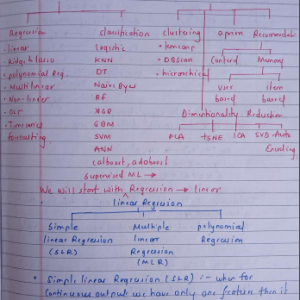 Regression Classification Clustering Apriori Recommender
• linear Logistic • kmeans
• Ridge & lasso KNN • DBscan Content Memory
• polynomial Reg.. DT • hierarchical
• Multi linear Naive Byes user item
• Non-linear RF based based
• DLT XGB Dimentionality Reduction
• Time series GBM
forcasting SVM PCA TSNE ICA SVD Auto
ANN Encoding
Catboost, adaboost
Supervised ML →
We will start with Regression → linear
linear Regression
Simple Multiple polynomial
linear Regression linear Regression
(SLR) Regression
(MLR)
• Simple linear Regression (SLR) :- when for
Continuous output we have only one feature then it